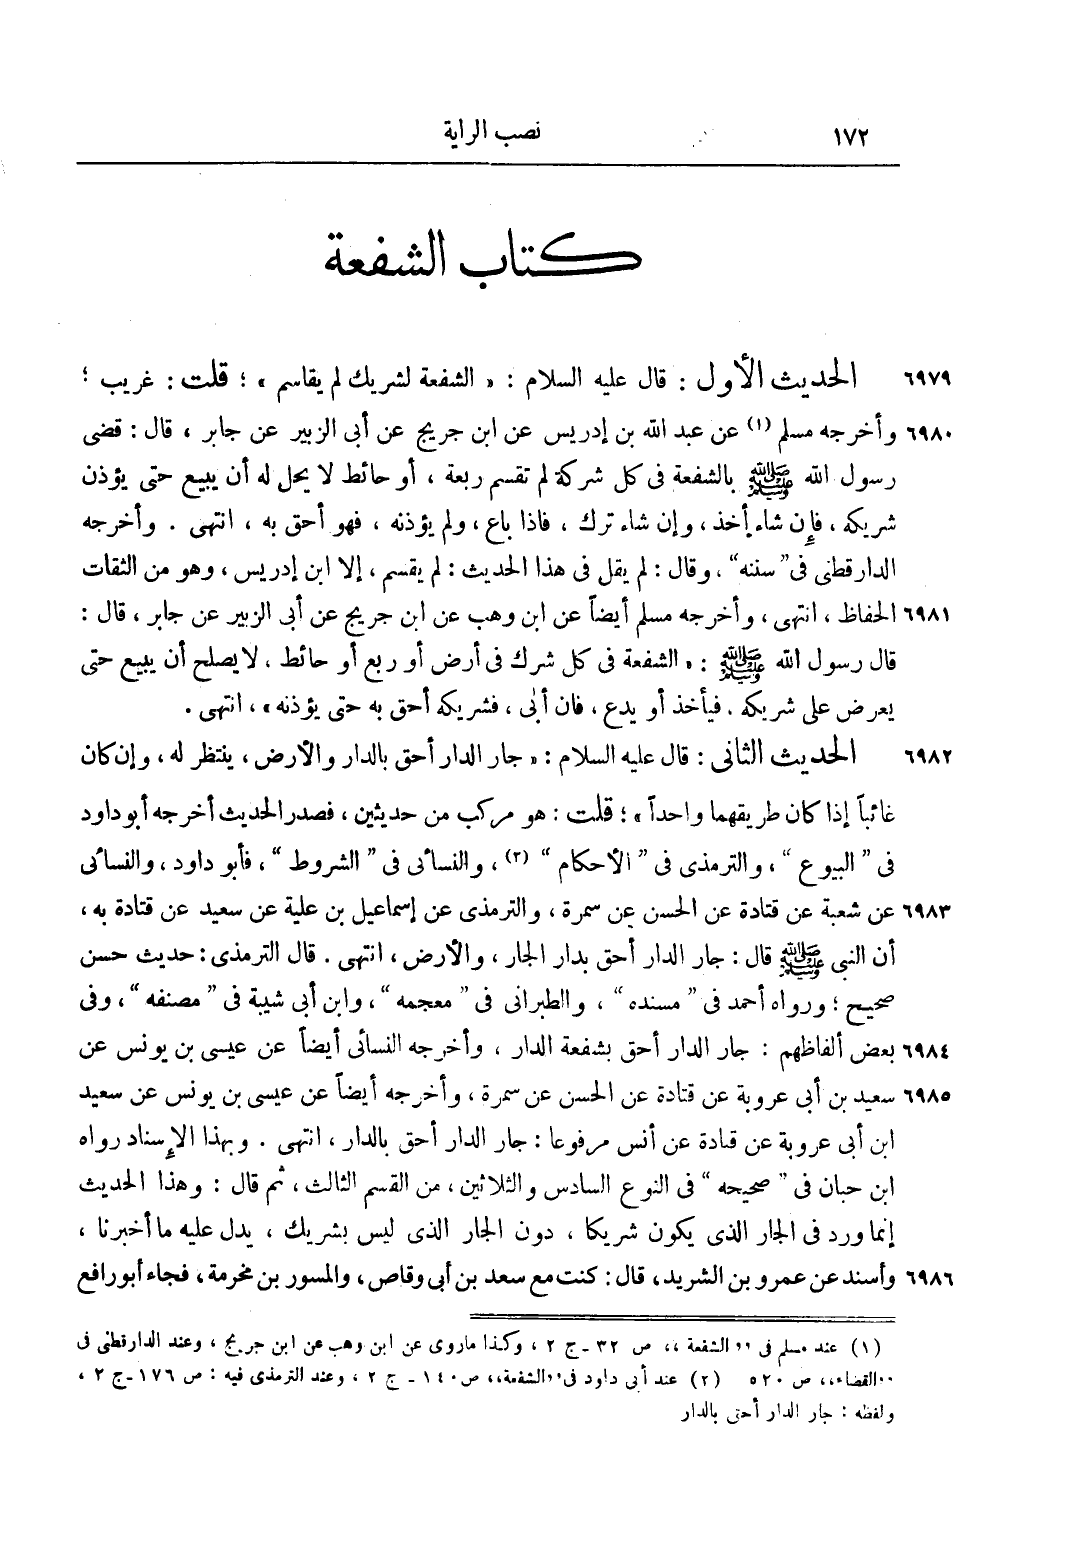 ١٧٢ نصب الراية
كتاب الشفعة
٦٩٧٩ الحديث الأول : قال عليه السلام : « الشفعة لشريك لم يقاسم » ؛ قلت : غريب ؛
٦٩٨٠ وأخرجه مسلم (١) عن عبد الله بن إدريس عن ابن جريج عن أبى الزبير عن جابر ، قال : قضى
رسول الله ﷺ بالشفعة فى كل شركة لم تقسم ربعة ، أو حائط لا يحل له أن يبيع حتى يؤذن
شريكه ، فإن شاء أخذ ، وإن شاء ترك ، فاذا باع ، ولم يؤذنه ، فهو أحق به ، انتهى . وأخرجه
الدارقطنى فى " سننه " ، وقال : لم يقل فى هذا الحديث : لم يقسم ، إلا ابن إدريس ، وهو من الثقات
٦٩٨١ الحفاظ ، انتهى ، وأخرجه مسلم أيضاً عن ابن وهب عن ابن جريج عن أبى الزبير عن جابر ، قال :
قال رسول الله ﷺ : « الشفعة فى كل شرك فى أرض أو ربع أو حائط ، لا يصلح أن يبيع حتى
يعرض على شريكه ، فيأخذ أو يدع ، فان أبى ، فشريكه أحق به حتى يؤذنه » ، انتهى .
٦٩٨٢ الحديث الثانى : قال عليه السلام : « جار الدار أحق بالدار والأرض ، ينتظر له ، وإن كان
غائباً إذا كان طريقهما واحداً » ؛ قلت : هو مركب من حديثين ، فصدر الحديث أخرجه أبو داود
فى " البيوع " ، والترمذى فى " الأحكام " (٢) ، والنسائى فى " الشروط " ، فأبو داود ، والنسائى
٦٩٨٣ عن شعبة عن قتادة عن الحسن عن سمرة ، والترمذى عن إسماعيل بن علية عن سعيد عن قتادة به ،
أن النبى ﷺ قال : جار الدار أحق بدار الجار ، والأرض ، انتهى . قال الترمذى : حديث حسن
صحيح ؛ ورواه أحمد فى " مسنده " ، والطبرانى فى " معجمه " ، وابن أبى شيبة فى " مصنفه " ، وفى
٦٩٨٤ بعض ألفاظهم : جار الدار أحق بشفعة الدار ، وأخرجه النسائى أيضاً عن عيسى بن يونس عن
٦٩٨٥ سعيد بن أبى عروبة عن قتادة عن الحسن عن سمرة ، وأخرجه أيضاً عن عيسى بن يونس عن سعيد
ابن أبى عروبة عن قتادة عن أنس مرفوعا : جار الدار أحق بالدار ، انتهى . وبهذا الإسناد رواه
ابن حبان فى " صحيحه " فى النوع السادس والثلاثين ، من القسم الثالث ، ثم قال : وهذا الحديث
إنما ورد فى الجار الذى يكون شريكا ، دون الجار الذى ليس بشريك ، يدل عليه ما أخبرنا ،
٦٩٨٦ وأسند عن عمرو بن الشريد ، قال : كنت مع سعد بن أبى وقاص ، والمسور بن مخرمة ، فجاء أبو رافع
(١) عند مسلم فى ,, الشفعة ،، ص ٣٢ ـ ج ٢ ، وكذا ماروى عن ابن وهب عن ابن جريج ، وعند الدارقطنى فى
,, القضاء ،، ص ٥٢٠ (٢) عند أبى داود فى ,, الشفعة ،، ص ١٤٠ ـ ج ٢ ، وعند الترمذى فيه : ص ١٧٦ ـ ج ٢ ،
ولفظه : جار الدار أحق بالدار